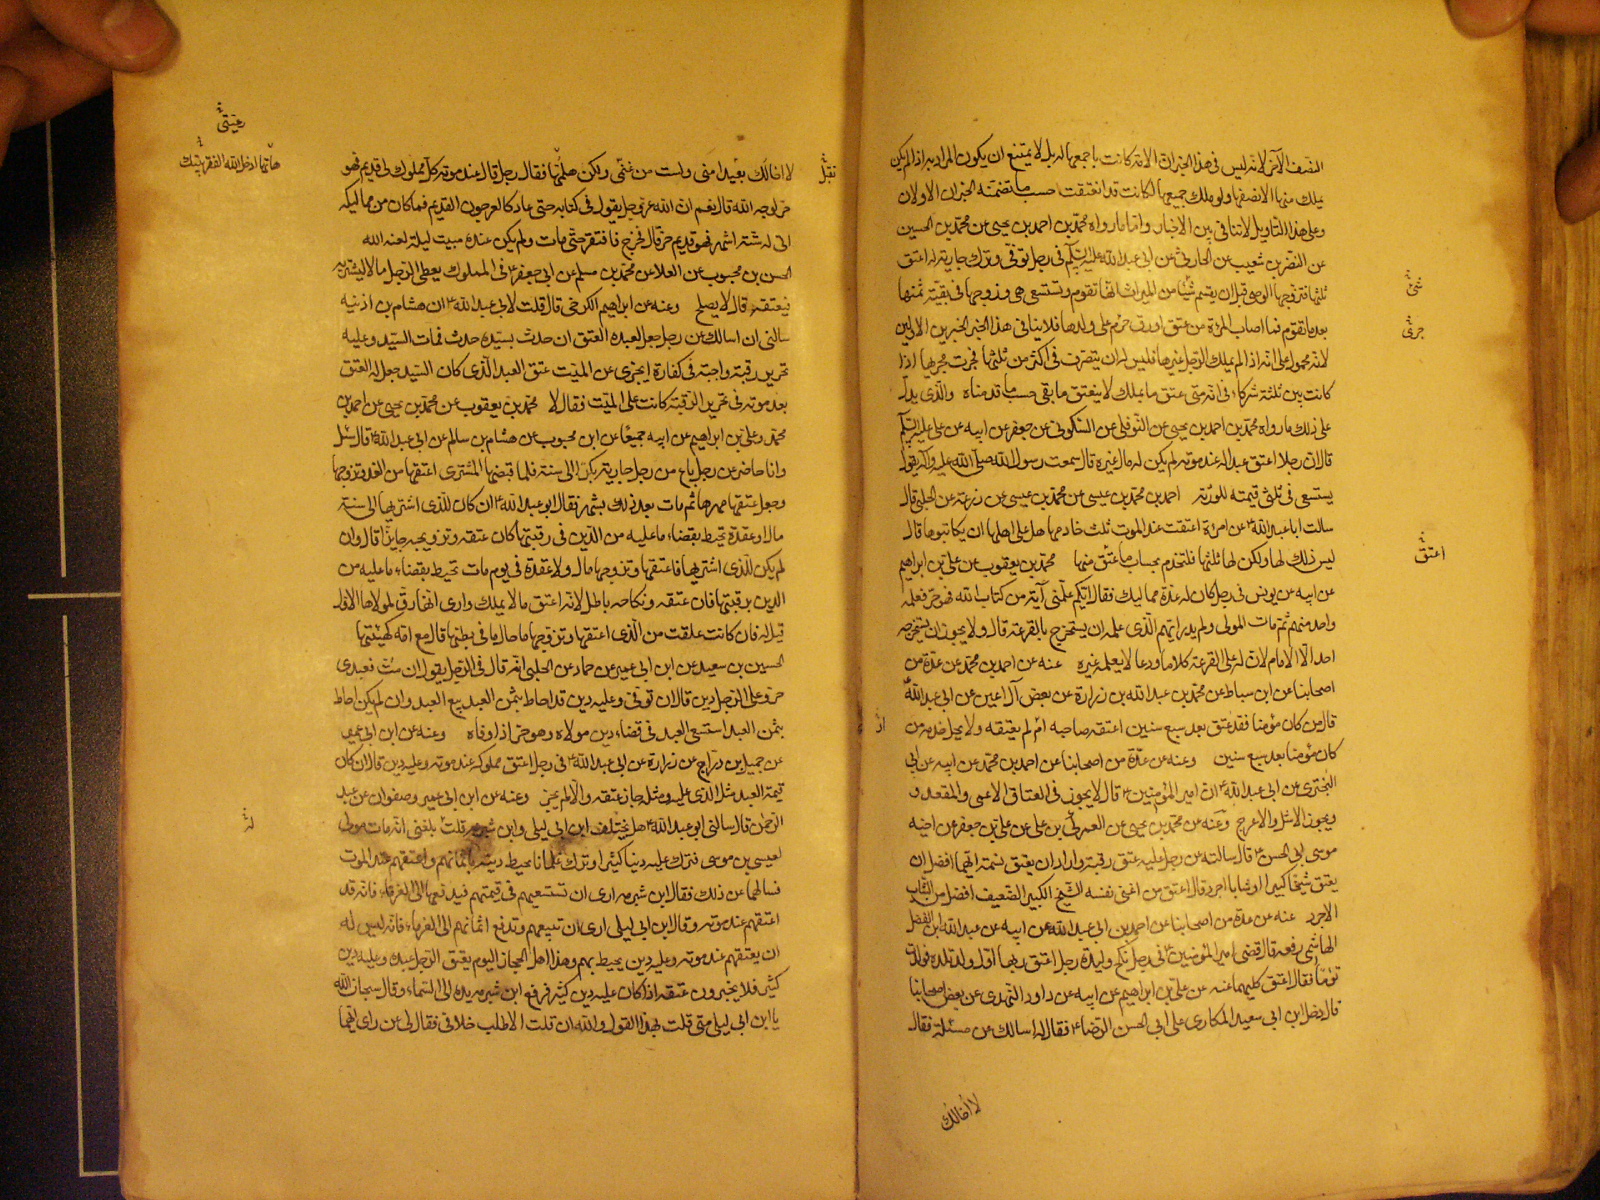 النصف الآخر لانه ليس فى هذا الخبر ان الامة كانت باجمعها له بل لا يمتنع ان يكون المراد به اذا لم يكن
يملك منها الا نصفها ولو ملك جميعها لكانت قد انعتقت حسب ما تضمنه الخبران الاولان
وعلى هذا التاويل لا تنافى بين الاخبار واما ما رواه محمد بن احمد بن يحيى عن محمد بن الحسين
عن النضر بن شعيب عن الحارثى عن ابى عبد الله عليه السلم فى رجل توفى وترك جارية له اعتق
ثلثها فتزوجها الوصى قبل ان يقسم شيئا من الميراث انها تقوم وتستسعى هى وزوجها فى بقية ثمنها
بعد ما تقوم فما اصاب المرءة من عتق او رق جرى على ولدها فلا ينافى هذا الخبر الخبرين الاولين
لانه محمول على انه اذا لم يملك الرجل غيرها فليس له ان يتصرف فى اكثر من ثلثها فجرت مجريها اذا
كانت بين ثلثة شركاء فى انه متى عتق ما يملك لا ينعتق ما بقى حسب ما قدمناه والذى يدل
على ذلك ما رواه محمد بن احمد بن يحيى عن النوفلى عن السكونى عن جعفر عن ابيه عن على عليه السلم
قال ان رجلا اعتق عبدا له عند موته لم يكن له مال غيره قال سمعت رسول الله صلى الله عليه وآله يقول
يستسعى فى ثلثى قيمته للورثة احمد بن محمد بن عيسى عن محمد بن عيسى عن زرعة عن الحلبى قال
سالت ابا عبد الله ع عن امرءة اعتقت عند الموت ثلث خادمها هل على اهلها ان يكاتبوها قال
ليس ذلك لها ولكن لها ثلثها فلتخدم بحساب ما عتق منها محمد بن يعقوب عن على بن ابراهيم
عن ابيه عن يونس فى رجل كان له عدة مماليك فقال ايكم علمنى آية من كتاب الله فهو حر فعلمه
واحد منهم ثم مات المولى ولم يدر ايهم الذى علمه ان يستخرج بالقرعة قال ولا يجوز ان يستخرجه
احد الا الامام لان له على القرعة كلاما ودعا لا يعلمه غيره عنه عن احمد بن محمد عن عدة من
اصحابنا عن ابن سباط عن محمد بن عبد الله بن زرارة عن بعض آل اعين عن ابى عبد الله ع
قال من كان مؤمنا فقد عتق بعد سبع سنين اعتقه صاحبه ام لم يعتقه ولا يحل خدمة من
كان مؤمنا بعد سبع سنين وعنه عن عدة من اصحابنا عن احمد بن محمد عن ابيه عن ابى
البخترى عن ابى عبد الله ع ان امير المؤمنين ع قال لا يجوز فى العتاق الاعمى والمقعد و
ويجوز الاشل والاعرج وعنه عن محمد بن يحيى عن العمركى بن على عن على بن جعفر عن اخيه
موسى ابى الحسن ع قال سالته عن رجل عليه عتق رقبة واراد ان يعتق نسمة ايهما افضل ان
يعتق شيخا كبيرا او شابا اجرد قال اعتق من اغنى نفسه الشيخ الكبير الضعيف افضل من الشاب
الاجرد عنه عن عدة من اصحابنا عن احمد بن ابى عبد الله عن ابيه عن عبد الله ابن الفضل
الهاشمى رفعه قال قضى امير المؤمنين ع فى رجل نكح وليدة رجل اعتق ربها اول ولد تلده فولدت
توءما فقال اعتق كليهما عنه عن على بن ابراهيم عن ابيه عن داود النهدى عن بعض اصحابنا
قال دخل ابن ابى سعيد المكارى على ابى الحسن الرضا ع فقال له اسالك عن مسئلة فقال
شئ
جرى
اعتق
لا اخالك
لا اخالك بعيدا منى ولست من غنمى ولكن هلمها فقال رجل قال عند موته كل مملوك لى قديم فهو
حر لوجه الله قال نعم ان الله عز وجل يقول فى كتابه حتى عاد كالعرجون القديم فما كان من مماليكه
اتى له ستة اشهر فهو قديم حر قال فخرج فافتقر حتى مات ولم يكن عنده مبيت ليلة لعنه الله
الحسن بن محبوب عن العلا عن محمد بن مسلم عن ابى جعفر ع فى المملوك يعطى الرجل مالا ليشتريه
فيعتقه قال لا يصلح وعنه عن ابراهيم الكرخى قال قلت لابى عبد الله ع ان هشام بن اذنيه
سالنى ان اسالك عن رجل جعل لعبده العتق ان حدث بسيده حدث فمات السيد وعليه
تحرير رقبة واجبة فى كفارة ايجزى عن الميت عتق العبد الذى كان السيد جعل له العتق
بعد موته فى تحرير الرقبة كانت على الميت فقال لا محمد بن يعقوب عن محمد بن يحيى عن احمد بن
محمد وعلى بن ابراهيم عن ابيه جميعا عن ابن محبوب عن هشام بن سالم عن ابى عبد الله ع قال سئل
وانا حاضر عن رجل باع من رجل جارية بكرا الى سنة فلما قبضها المشترى اعتقها من الغد وتزوجها
وجعل عتقها مهرها ثم مات بعد ذلك بشهر فقال ابو عبد الله ع ان كان للذى اشتريها الى سنة
مال او عقدة تحيط بقضاء ما عليه من الدين فى رقبتها كان عتقه وتزويجه جايزا قال وان
لم يكن للذى اشتريها فاعتقها وتزوجها مال ولا عقدة فى يوم مات تحيط بقضاء ما عليه من
الدين برقبتها فان عتقه ونكاحه باطل لانه اعتق ما لا يملك وارى انها رق لمولاها الاول
قيل له فان كانت علقت من الذى اعتقها وتزوجها ما حال ما فى بطنها قال مع امه كهيئتها
الحسين بن سعيد عن ابن ابى عمير عن حماد عن الحلبى انه قال فى الرجل يقول ان مت فعبدى
حر وعلى الرجل دين قال ان توفى وعليه دين قد احاط بثمن العبد بيع العبد وان لم يكن احاط
بثمن العبد استسعى العبد فى قضاء دين مولاه وهو حر اذا وفاه وعنه عن ابن ابى عمير
عن جميل بن دراج عن زرارة عن ابى عبد الله ع فى رجل اعتق مملوكه عند موته وعليه دين قال ان كان
قيمة العبد مثل الذى عليه ومثله جاز عتقه والا لم يجز وعنه عن ابن ابى عمير وصفوان عن عبد
الرحمن قال سالنى ابو عبد الله ع هل يختلف ابن ابى ليلى وابن شبرمة قلت بلغنى انه مات مولى
لعيسى بن موسى فترك عليه دينا كثيرا وترك غلمانا يحيط دينه باثمانهم واعتقهم عند الموت
فسالهما عن ذلك فقال ابن شبرمة ارى ان تستسعيهم فى قيمتهم فيدفعها الى الغرماء فانه قد
اعتقهم عند موته وقال ابن ابى ليلى ارى ان تبيعهم وتدفع اثمانهم الى الغرماء فانه ليس له
ان يعتقهم عند موته وعليه دين يحيط بهم وهذا اهل الحجاز اليوم يعتق الرجل عبده وعليه دين
كثير فلا يجيزون عتقه اذا كان عليه دين كثير فرفع ابن شبرمة يده الى السماء وقال سبحان الله
يا ابن ابى ليلى متى قلت بهذا القول والله ان قلته الا طلب خلافى فقال لى عن راى ايهما
تقبل
هاتها ادخل الله الفقر بيتك